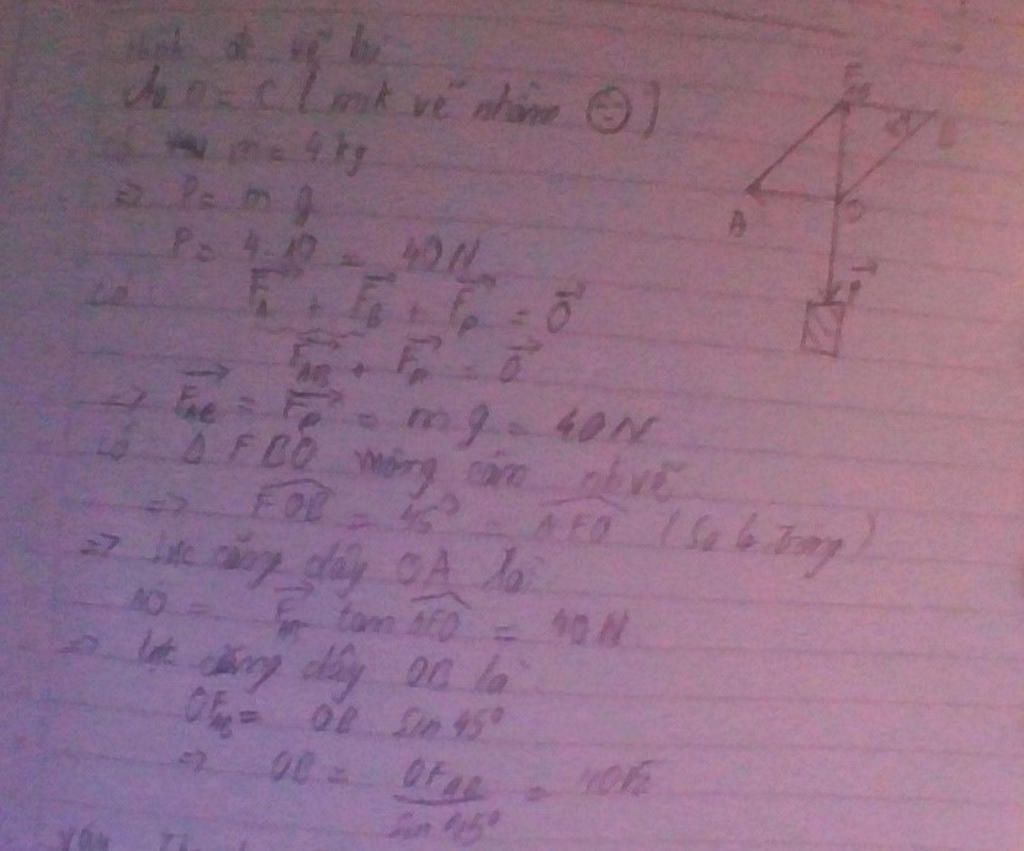 Hình vẽ lại
Cho O = C (mk vẽ nhầm)
có m = 4 kg
=> P = m g
P = 4 . 10 = 40 N
có F_A + F_B + F_P = 0
F_AB + F_P = 0
=> F_AB = F_P = m g = 40 N
có Δ FBO vuông cân như vẽ
=> FOB = 45° = AFO (so le trong)
=> lực căng dây OA là
AO = F_AB tan AFO = 40 N
=> lực căng dây OB là
OF_AB = OB sin 45°
=> OB = OF_AB / sin 45° = 40√2
F_AB
B
A
O
P